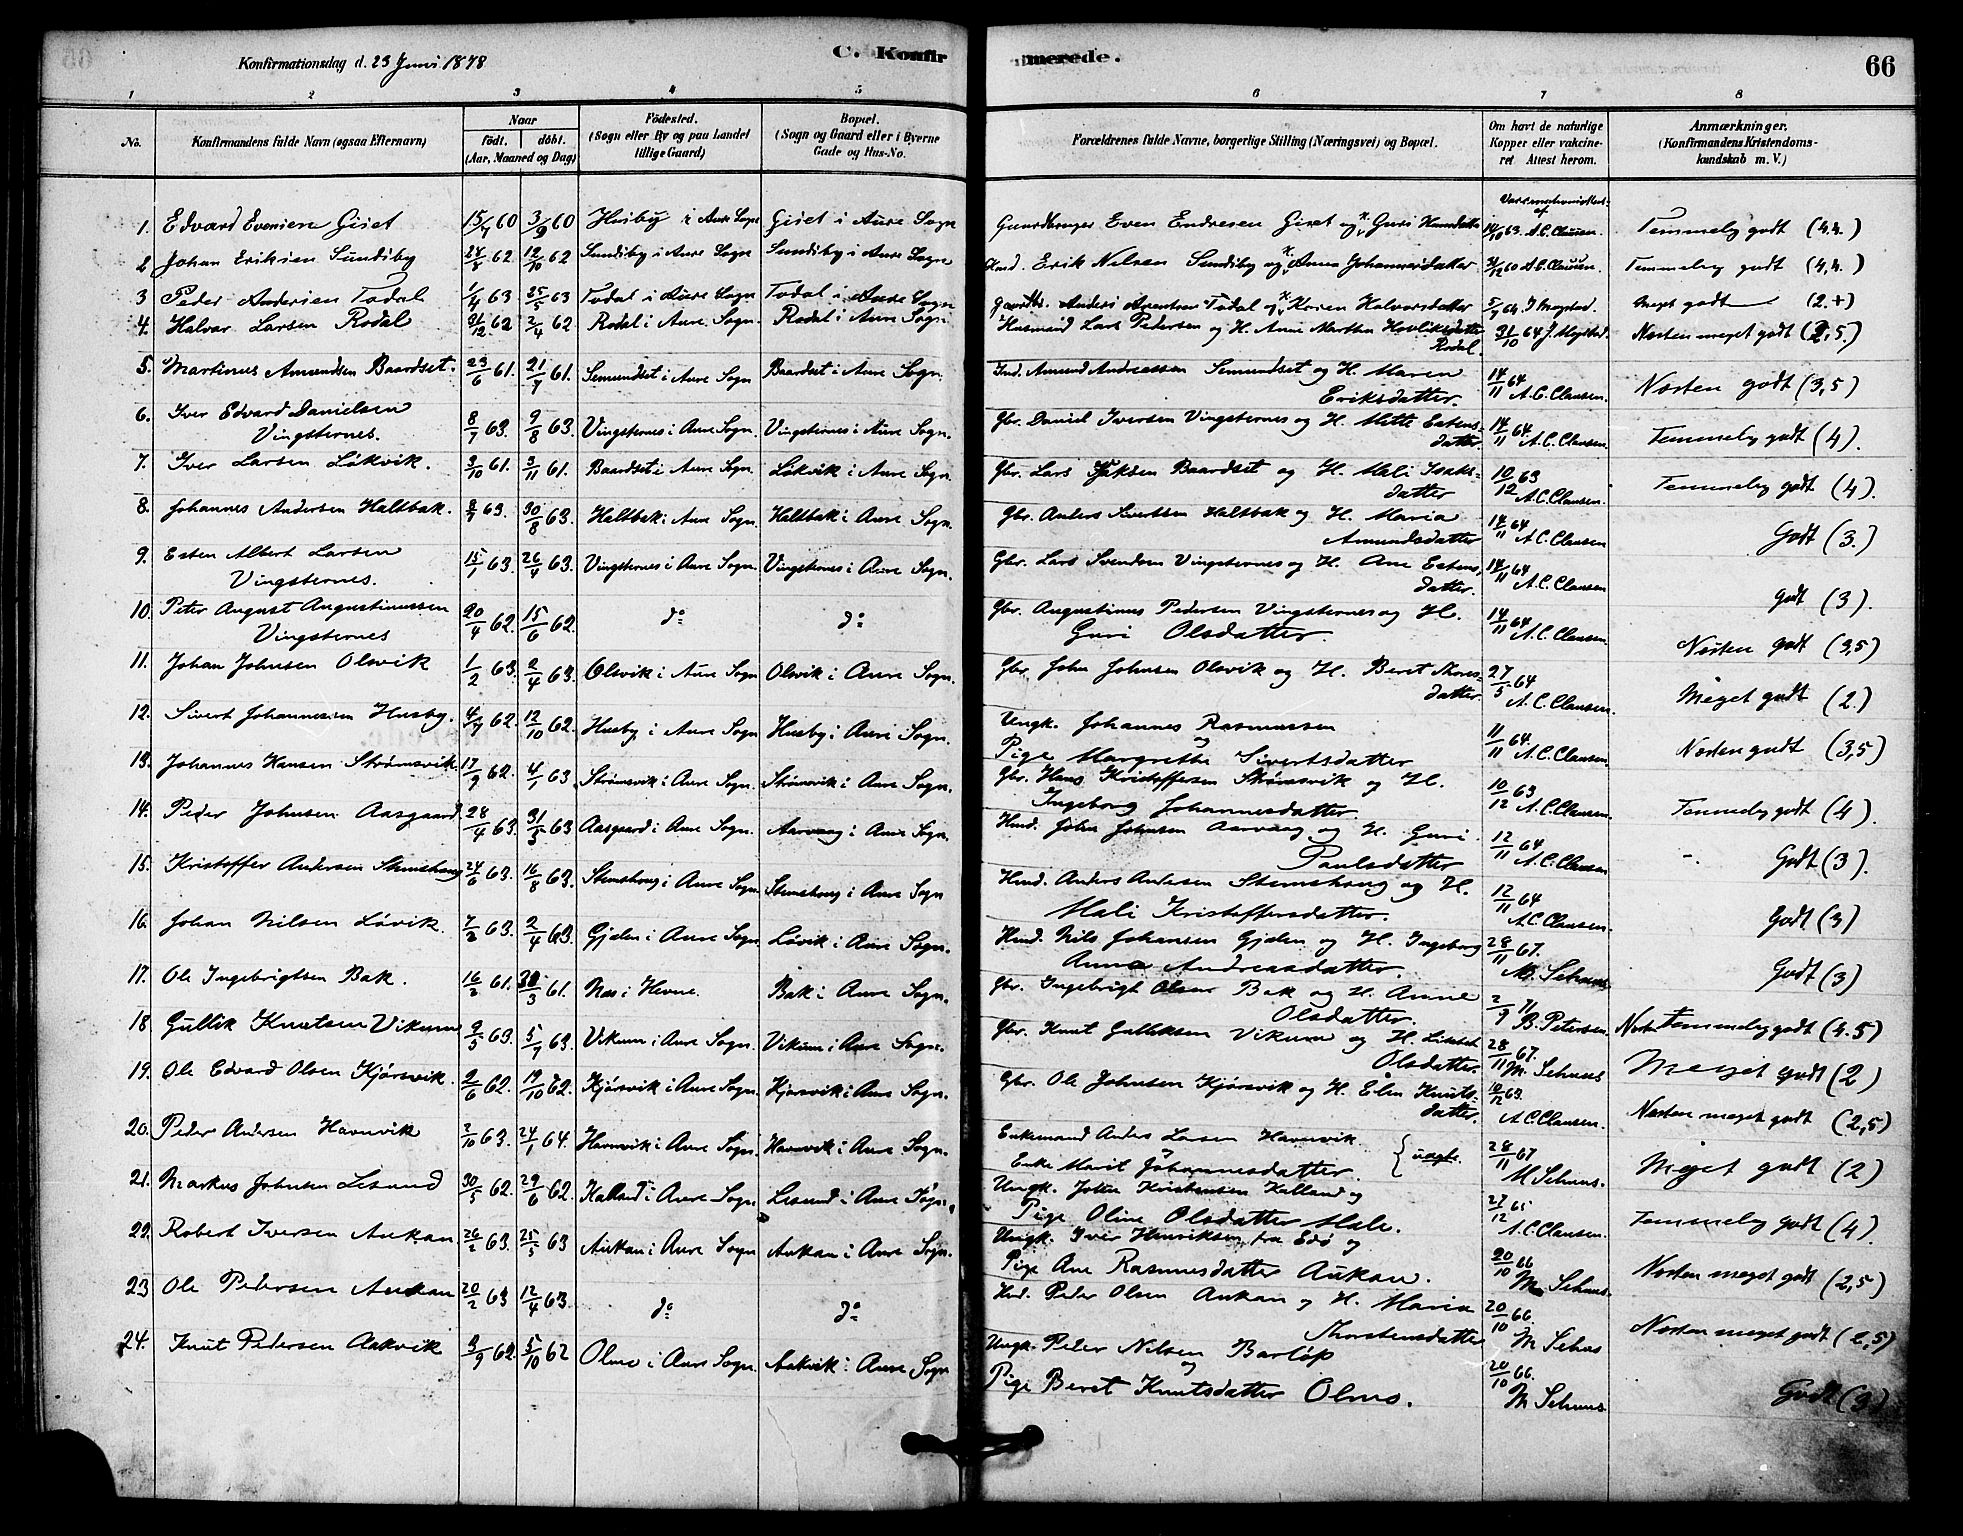 Konfirmationsdag d. 23 Juni 1878
C. Konfirmerede.
66
1 2 3 4 5 6 7 8
No.
Konfirmandens fulde Navn (ogsaa Efternavn)
Naar
født. døbt.
(Aar, Maaned og Dag)
Fødested.
(Sogn eller By og paa Landet
tillige Gaard)
Bopæl.
(Sogn og Gaard eller i Byerne
Gade og Hus-No.
Forældrenes fulde Navne, borgerlige Stilling (Næringsvei) og Bopæl.
Om havt de naturlige
Kopper eller vakcine-
ret Attest herom.
Anmærkninger.
(Konfirmandens Kristendoms-
kundskab m. V.)
1. Edvard Evensen Giset 15/7 60 3/9 60 Husby i Aure Sogn Giset i Aure Sogn Gaardbruger Even Endresen Giset og Guri 14/10 63 A. C. Clausen. Temmelig godt (4.)
2 Johan Eriksen Sundsby 24/8 62 12/10 62 Sundsby i Aure Sogn Sundsby i Aure Sogn Hmd. Erik Nilsen Sundsby og Anna Johannesdatter A. C. Clausen. Temmelig godt (4,4.)
3 Peder Andersen Todal 1/4 63 25/5 63 Todal i Aure Sogn Todal i Aure Sogn Anders Todal og Karen Halvorsdatter 5/7 64 J. Mogstad. Meget godt (2+)
4. Halvor Larsen Rodal 31/12 62 2/4 62 Rodal i Aure Sogn. Rodal i Aure Sogn Husmand Lars Pedersen og H. Ane Martha
Rodal. 31/10 64 J. Mogstad. Næsten meget godt (2,5.)
5. Martinus Amundsen Baardset. 23/6 61. 21/7 61. Semundset i Aure Sogn Baardset i Aure Sogn. Ind. Amund Andreassen Semundset og H. Maren
Eriksdatter. 14/11 64 A. C. Clausen. Næsten godt (3,5)
6. Iver Edvard Danielsen
Vingsternes. 8/7 63. 9/8 63. Vingsternes i Aure Sogn. Vingsternes i Aure Sogn. Gbr. Daniel Iversen Vingsternes og H. Mette Estens-
datter 14/11 64 A. C. Clausen. Temmelig godt (4).
7. Iver Larsen Løkvik. 3/10 61. 3/11 61. Baardset i Aure Sogn. Løkvik i Aure Sogn. Gbr. Lars Baardset og H. Mali Isaks-
datter 10/12 63 A. C. Clausen. Temmelig godt (4).
8. Johannes Andersen Haltbak. 8/7 63. 30/8 63. Haltbak i Aure Sogn. Haltbak i Aure Sogn. Gbr. Anders Sivertsen Haltbak og H. Maria
Amundsdatter 14/11 64 A. C. Clausen Godt (3.)
9. Esten Albert Larsen
Vingsternes. 15/1 63. 26/4 63. Vingsternes i Aure Sogn. Vingsternes i Aure Sogn. Gbr. Lars Svendsen Vingsternes og H. Ane Estens-
datter. 14/11 64 A. C. Clausen godt (3).
10. Peter August Augustinussen
Vingsternes 20/4 62. 15/6 62. do do Gbr. Augustinus Pedersen Vingsternes og H.
Guri Olsdatter 14/11 64 A. C. Clausen. Næsten godt (3,5)
11. Johan Johnsen Olsvik 1/2 63. 2/4 63. Olsvik i Aure Sogn Olsvik i Aure Sogn. Gbr. John Johnsen Olsvik og H. Beret Thores-
datter. 27/5 64 A. C. Clausen. Meget godt (2.)
12. Sivert Johannessen Husby. 4/7 62. 12/10 62. Husby i Aure Sogn Husby i Aure Sogn. Ungk. Johannes Rasmussen
og
Pige Margrethe Sivertsdatter 11/11 64 A. C. Clausen. Næsten godt (3,5)
13. Johannes Hansen Strømsvik. 17/9 62. 4/1 63. Strømsvik i Aure Sogn Strømsvik i Aure Sogn. Gbr. Hans Kristoffersen Strømsvik og H.
Ingeborg Johannesdatter. 10/12 63 A. C. Clausen. Temmelig godt (4).
14. Peder Johnsen Aasgaard 28/4 63. 31/5 63 Aasgaard i Aure Sogn. Aarvaag i Aure Sogn. Hmd. John Johnsen Aarvaag og H. Guri
Paulsdatter 12/11 64 A. C. Clausen Godt (3).
15. Kristoffer Andersen Stemshaug 24/6 63. 16/8 63. Stemshaug i Aure Sogn. Stemshaug i Aure Sogn Hmd. Anders Andersen Stemshaug og H.
Mali Kristoffersdatter. 12/11 64 A. C. Clausen. Godt (3)
16. Johan Nilsen Løvik. 7/2 63. 2/4 63. Gjelen i Aure Sogn. Løvik i Aure Sogn. Hmd. Nils Johansen Gjelen og H. Ingeborg
Anna Andreasdatter. 28/11 67. M. Schuus Godt (3)
17. Ole Ingebrigtsen Bak. 16/2 61. 3 61. Næs i Hevne. Bak i Aure Sogn. Gbr. Ingebrigt Olsen Bak og H. Anne
Olsdatter. 2/9 71 B. Petersen. Næsten Temmelig godt (4.5)
18 Gullik Knutsen Vikum 9/5 63. 5/7 63. Vikum i Aure Sogn. Vikum i Aure Sogn. Gbr. Knut Gulliksen Vikum og H. Lisbet
Olsdatter. 28/11 67. M. Schuus Meget godt (2)
19. Ole Edvard Olsen Kjørsvik. 9/6 62. 19/10 62. Kjørsvik i Aure Sogn. Kjørsvik i Aure Sogn. Gbr. Ole Johnsen Kjørsvik og H. Elen Knuts-
datter. 10/12 63. A. C. Clausen. Næsten meget godt (2,5)
20. Peder Andersen Havnvik 2/10 63. 24/1 64. Havnvik i Aure Sogn. Havnvik i Aure Sogn. Enkemand Anders Larsen Havnvik
Enke Marit Johannesdatter. } uægte. 28/11 67 M Schuus. Meget godt (2)
21. Markus Johnsen Lesund 30/5 62. 29/6 62. Kalland i Aure Sogn. Lesund i Aure Sogn. Ungk. John Kristensen Kalland og
Pige Oline Olsdatter Mele. 27/12 65 A. C. Clausen. Temmelig godt (4)
22. Robert Iversen Aukan 26/2 63. 25/5 63 Aukan i Aure Sogn Aukan i Aure Sogn. Ungk. Iver Henriksen fra Edø og
Pige Ane Rasmusdatter Aukan. 20/10 66 M Schuus. Næsten meget godt (2,5)
23 Ole Pedersen Aukan 20/2 63 12/4 63. do do Hmd. Peder Olsen Aukan og H. Maria
Thorstensdatter 20/10 66. M Schuus Næsten meget godt (2,5)
24. Knut Pedersen Aakvik 9/9 62. 5/10 62 Olmo i Aure Sogn. Aakvik i Aure Sogn Ungk. Peter Nilsen Barløp
og
Pige Beret Knutsdatter Olmo. 20/10 66. M Schuus. Godt (3)